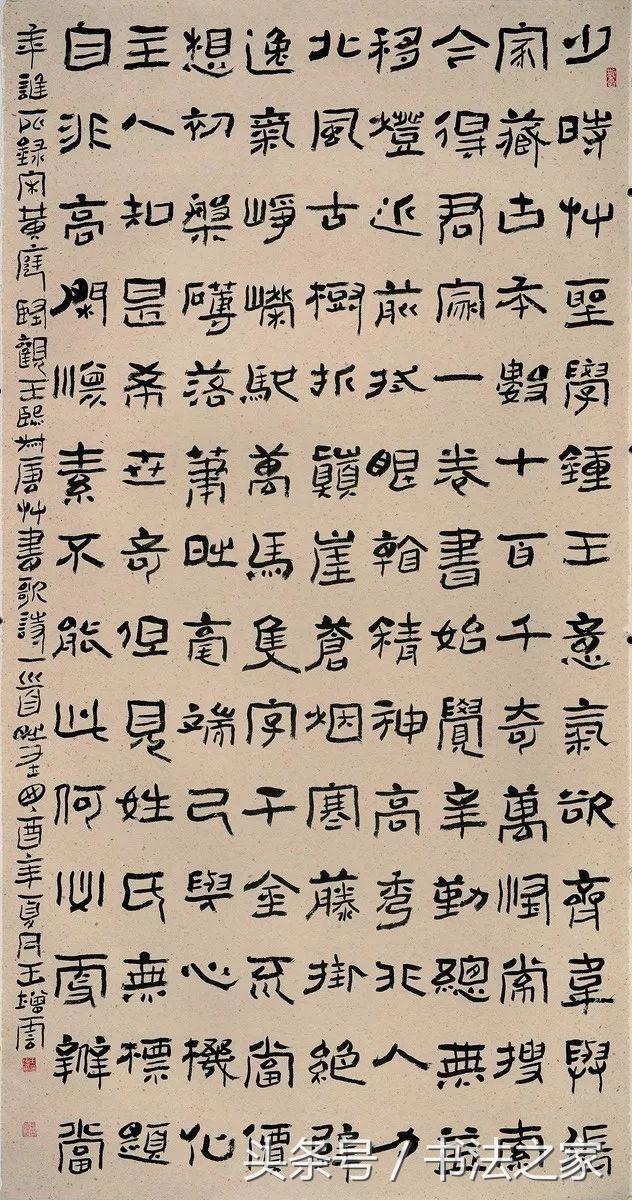 少時艸聖學鍾王意氣欲齊韋與張
家藏古本數十百千奇萬怪常搜索
今得君家一卷書始覺辛勤總無益
移燈近前拭眼看精神高秀非人力
北風古樹折顛崖蒼烟寒藤掛絕壁
逸氣崢嶸馳萬馬隻字千金不當價
想初槃礴落筆時毫端已與心機化
主人知是希世奇但見姓氏無標題
自非高閑懷素不能此何必更辨當
年誰所錄宋黃庭堅觀王熙叔唐艸書歌詩一首時在酉年夏月王增
头条号 / 书法之家